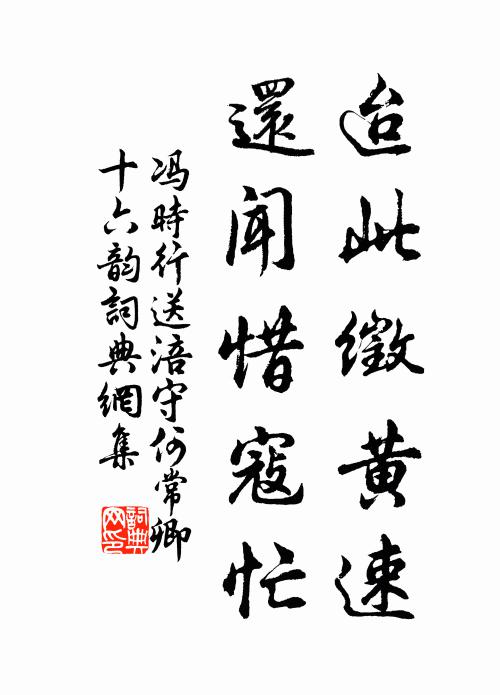 迨此徵黄速
還闻惜寇忙
冯時行送涪守何常卿
十六韵詞典網集
詞典網印